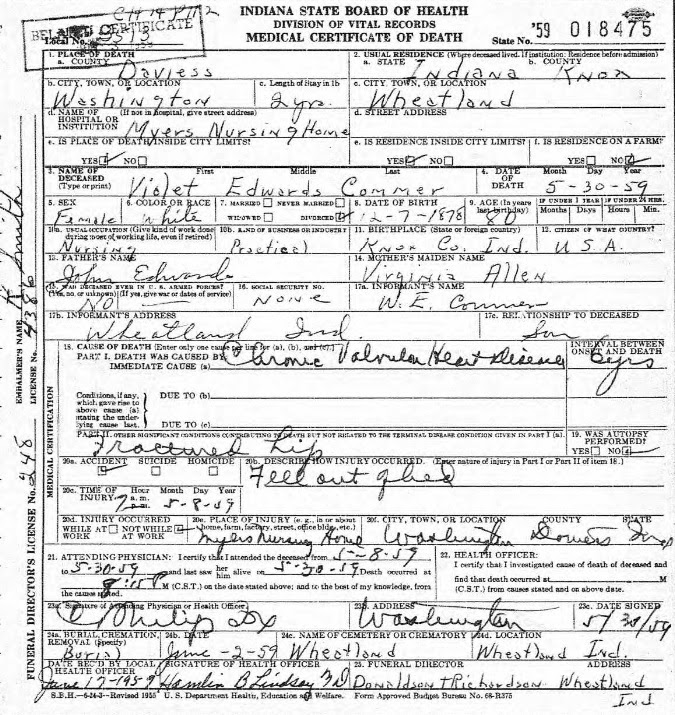 INDIANA STATE BOARD OF HEALTH
DIVISION OF VITAL RECORDS
MEDICAL CERTIFICATE OF DEATH
CERTIFICATE
Local No.
State No. '59 018475
1. PLACE OF DEATH
a. COUNTY Daviess
2. USUAL RESIDENCE (Where deceased lived. If institution: Residence before admission)
a. STATE Indiana b. COUNTY Knox
b. CITY, TOWN, OR LOCATION Washington
c. Length of Stay in 1b 2yrs.
c. CITY, TOWN, OR LOCATION Wheatland
d. NAME OF HOSPITAL OR INSTITUTION (If not in hospital, give street address) Myers Nursing Home
d. STREET ADDRESS
e. IS PLACE OF DEATH INSIDE CITY LIMITS? YES NO
e. IS RESIDENCE INSIDE CITY LIMITS? YES NO
f. IS RESIDENCE ON A FARM? YES NO
3. NAME OF DECEASED (Type or print) First Middle Last
Violet Edwards Commer
4. DATE OF DEATH Month Day Year
5-30-59
5. SEX Female
6. COLOR OR RACE White
7. MARRIED NEVER MARRIED WIDOWED DIVORCED
8. DATE OF BIRTH 12-7-1878
9. AGE (In years last birthday) 80
IF UNDER 1 YEAR Months Days
IF UNDER 24 HRS. Hours Min.
10a. USUAL OCCUPATION (Give kind of work done during most of working life, even if retired) Nursing
10b. KIND OF BUSINESS OR INDUSTRY Practical
11. BIRTHPLACE (State or foreign country) Knox Co. Ind.
12. CITIZEN OF WHAT COUNTRY? U.S.A.
13. FATHER'S NAME John Edwards
14. MOTHER'S MAIDEN NAME Virginia Allen
15. WAS DECEASED EVER IN U. S. ARMED FORCES? (Yes, no, or unknown) (If yes, give war or dates of service) NO
16. SOCIAL SECURITY NO. None
17a. INFORMANT'S NAME W. E. Commer
17b. INFORMANT'S ADDRESS Wheatland Ind.
17c. RELATIONSHIP TO DECEASED Son
MEDICAL CERTIFICATION
18. CAUSE OF DEATH (Enter only one cause per line for (a), (b), and (c).)
PART I. DEATH WAS CAUSED BY
IMMEDIATE CAUSE (a) Chronic Valvular Heart Disease
INTERVAL BETWEEN ONSET AND DEATH
Conditions, if any, which gave rise to above cause (a) stating the underlying cause last.
DUE TO (b)
DUE TO (c)
PART II. OTHER SIGNIFICANT CONDITIONS CONTRIBUTING TO DEATH BUT NOT RELATED TO THE TERMINAL DISEASE CONDITION GIVEN IN PART I (a).
Fractured hip
19. WAS AUTOPSY PERFORMED? YES NO
20a. ACCIDENT SUICIDE HOMICIDE
20b. DESCRIBE HOW INJURY OCCURRED. (Enter nature of injury in Part I or Part II of item 18.)
Fell out of bed
20c. TIME OF INJURY Hour a.m. p.m. Month Day Year
7 5-8-59
20d. INJURY OCCURRED WHILE AT WORK NOT WHILE AT WORK
20e. PLACE OF INJURY (e. g., in or about home, farm, factory, street, office bldg., etc.)
Myers Nursing Home
20f. CITY, TOWN, OR LOCATION COUNTY STATE
Washington Daviess Ind
21. ATTENDING PHYSICIAN: I certify that I attended the deceased from 5-8-59
to 5-30-59 and last saw her him alive on 5-30-59 Death occurred at
M (C.S.T.) on the date stated above; and to the best of my knowledge, from the causes stated.
22. HEALTH OFFICER:
I certify that I investigated cause of death of deceased and find that death occurred at M (C.S.T.) from causes stated and on above date.
23a. Signature of Attending Physician or Health Officer
C Philip
23b. ADDRESS Washington
23c. DATE SIGNED 5/30/59
24a. BURIAL, CREMATION, REMOVAL (Specify) Burial
24b. DATE June-2-59
24c. NAME OF CEMETERY OR CREMATORY Wheatland
24d. LOCATION Wheatland Ind.
DATE REC'D BY LOCAL HEALTH OFFICER June 17-1959
SIGNATURE OF HEALTH OFFICER Hamlin B Lindsay MD
25. FUNERAL DIRECTOR ADDRESS
Donaldson & Richardson Wheatland Ind
S.B.H.—6-24-3—Revised 1955 U. S. Department Health, Education and Welfare. Form Approved Budget Bureau No. 68-R375
FUNERAL DIRECTOR'S LICENSE No. 248
EMBALMER'S NAME Smith
LICENSE No. 4386